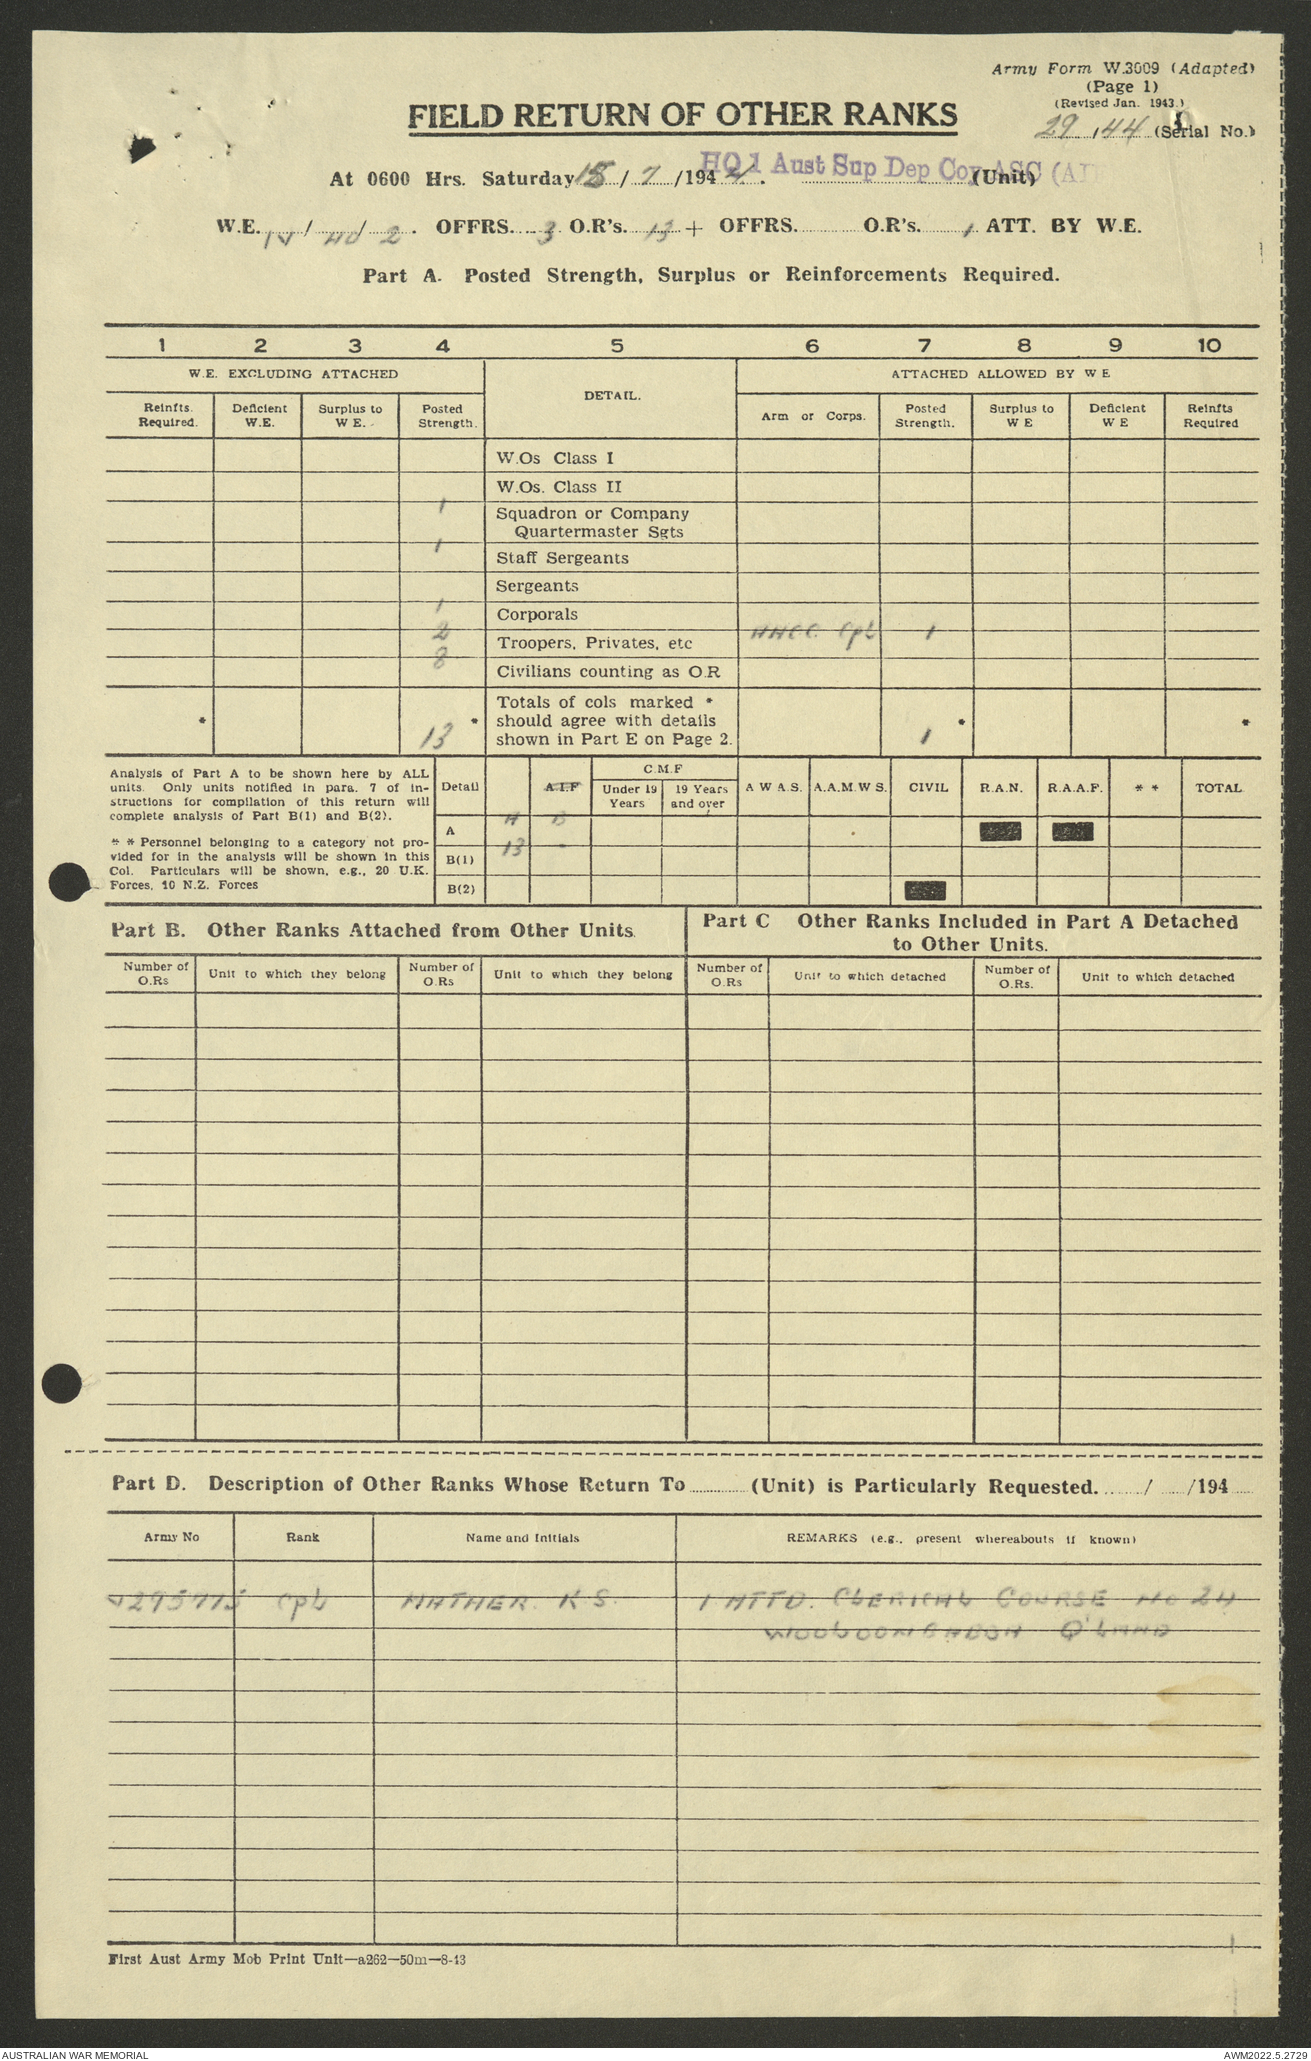 Army Form W.3009 (Adapted)
(Page 1)
(Revised Jan. 1943.)
FIELD RETURN OF OTHER RANKS
29 / 44 (Serial No.)
At 0600 Hrs. Saturday 15 / 7 /194 4. HQ 1 Aust Sup Dep Coy ASC (AIF (Unit)
W.E. IV / 40 / 2 . OFFRS. 3 O.R's. 13 + OFFRS. O.R's. 1 ATT. BY W.E.
Part A. Posted Strength, Surplus or Reinforcements Required.
1 2 3 4 5 6 7 8 9 10
W.E. EXCLUDING ATTACHED DETAIL. ATTACHED ALLOWED BY W E
Reinfts. Required. Deficient W.E. Surplus to W E. Posted Strength. Arm or Corps. Posted Strength. Surplus to W E Deficient W E Reinfts Required
W.Os Class I
W.Os. Class II
1 Squadron or Company
Quartermaster Sgts
1 Staff Sergeants
Sergeants
1 Corporals
2 Troopers, Privates, etc Cpl 1
8 Civilians counting as O.R
Totals of cols marked *
* * should agree with details * *
13 shown in Part E on Page 2. 1
Analysis of Part A to be shown here by ALL
units. Only units notified in para. 7 of in-
structions for compilation of this return will
complete analysis of Part B(1) and B(2).
* * Personnel belonging to a category not pro-
vided for in the analysis will be shown in this
Col. Particulars will be shown, e.g., 20 U.K.
Forces, 10 N.Z. Forces
Detail A.I.F C.M.F Under 19 Years 19 Years and over A W A.S. A.A.M.W S. CIVIL R.A.N. R.A.A.F. * * TOTAL
A A B
B(1) 13 -
B(2)
Part B. Other Ranks Attached from Other Units.
Part C Other Ranks Included in Part A Detached
to Other Units.
Number of O.Rs Unit to which they belong Number of O.Rs Unit to which they belong Number of O.Rs Unit to which detached Number of O.Rs. Unit to which detached
Part D. Description of Other Ranks Whose Return To (Unit) is Particularly Requested. / /194
Army No Rank Name and Initials REMARKS (e.g., present whereabouts if known)
V295775 Cpl MATHER K S. 1 ATTD. CLERICAL COURSE NO 24
WOOLOONGABBA Q'LAND
First Aust Army Mob Print Unit—a262—50m—8-43
AUSTRALIAN WAR MEMORIAL
AWM2022.5.2729